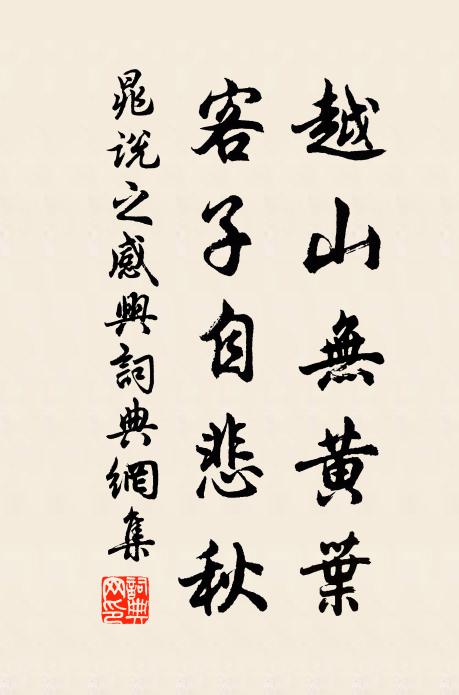 越山無黄葉
客子自悲秋
晁説之感興詞典網集
詞典網印